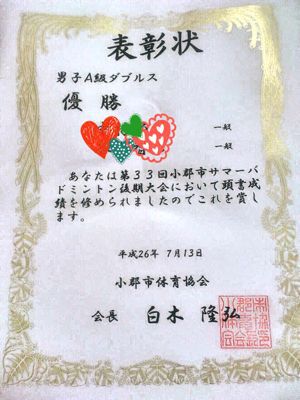 表彰状
男子A級ダブルス
優勝
一般
一般
あなたは第33回小郡市サマーバ
ドミントン後期大会において頭書成
績を修められましたのでこれを賞し
ます。
平成26年 7月13日
小郡市体育協会
会長 白木 隆弘